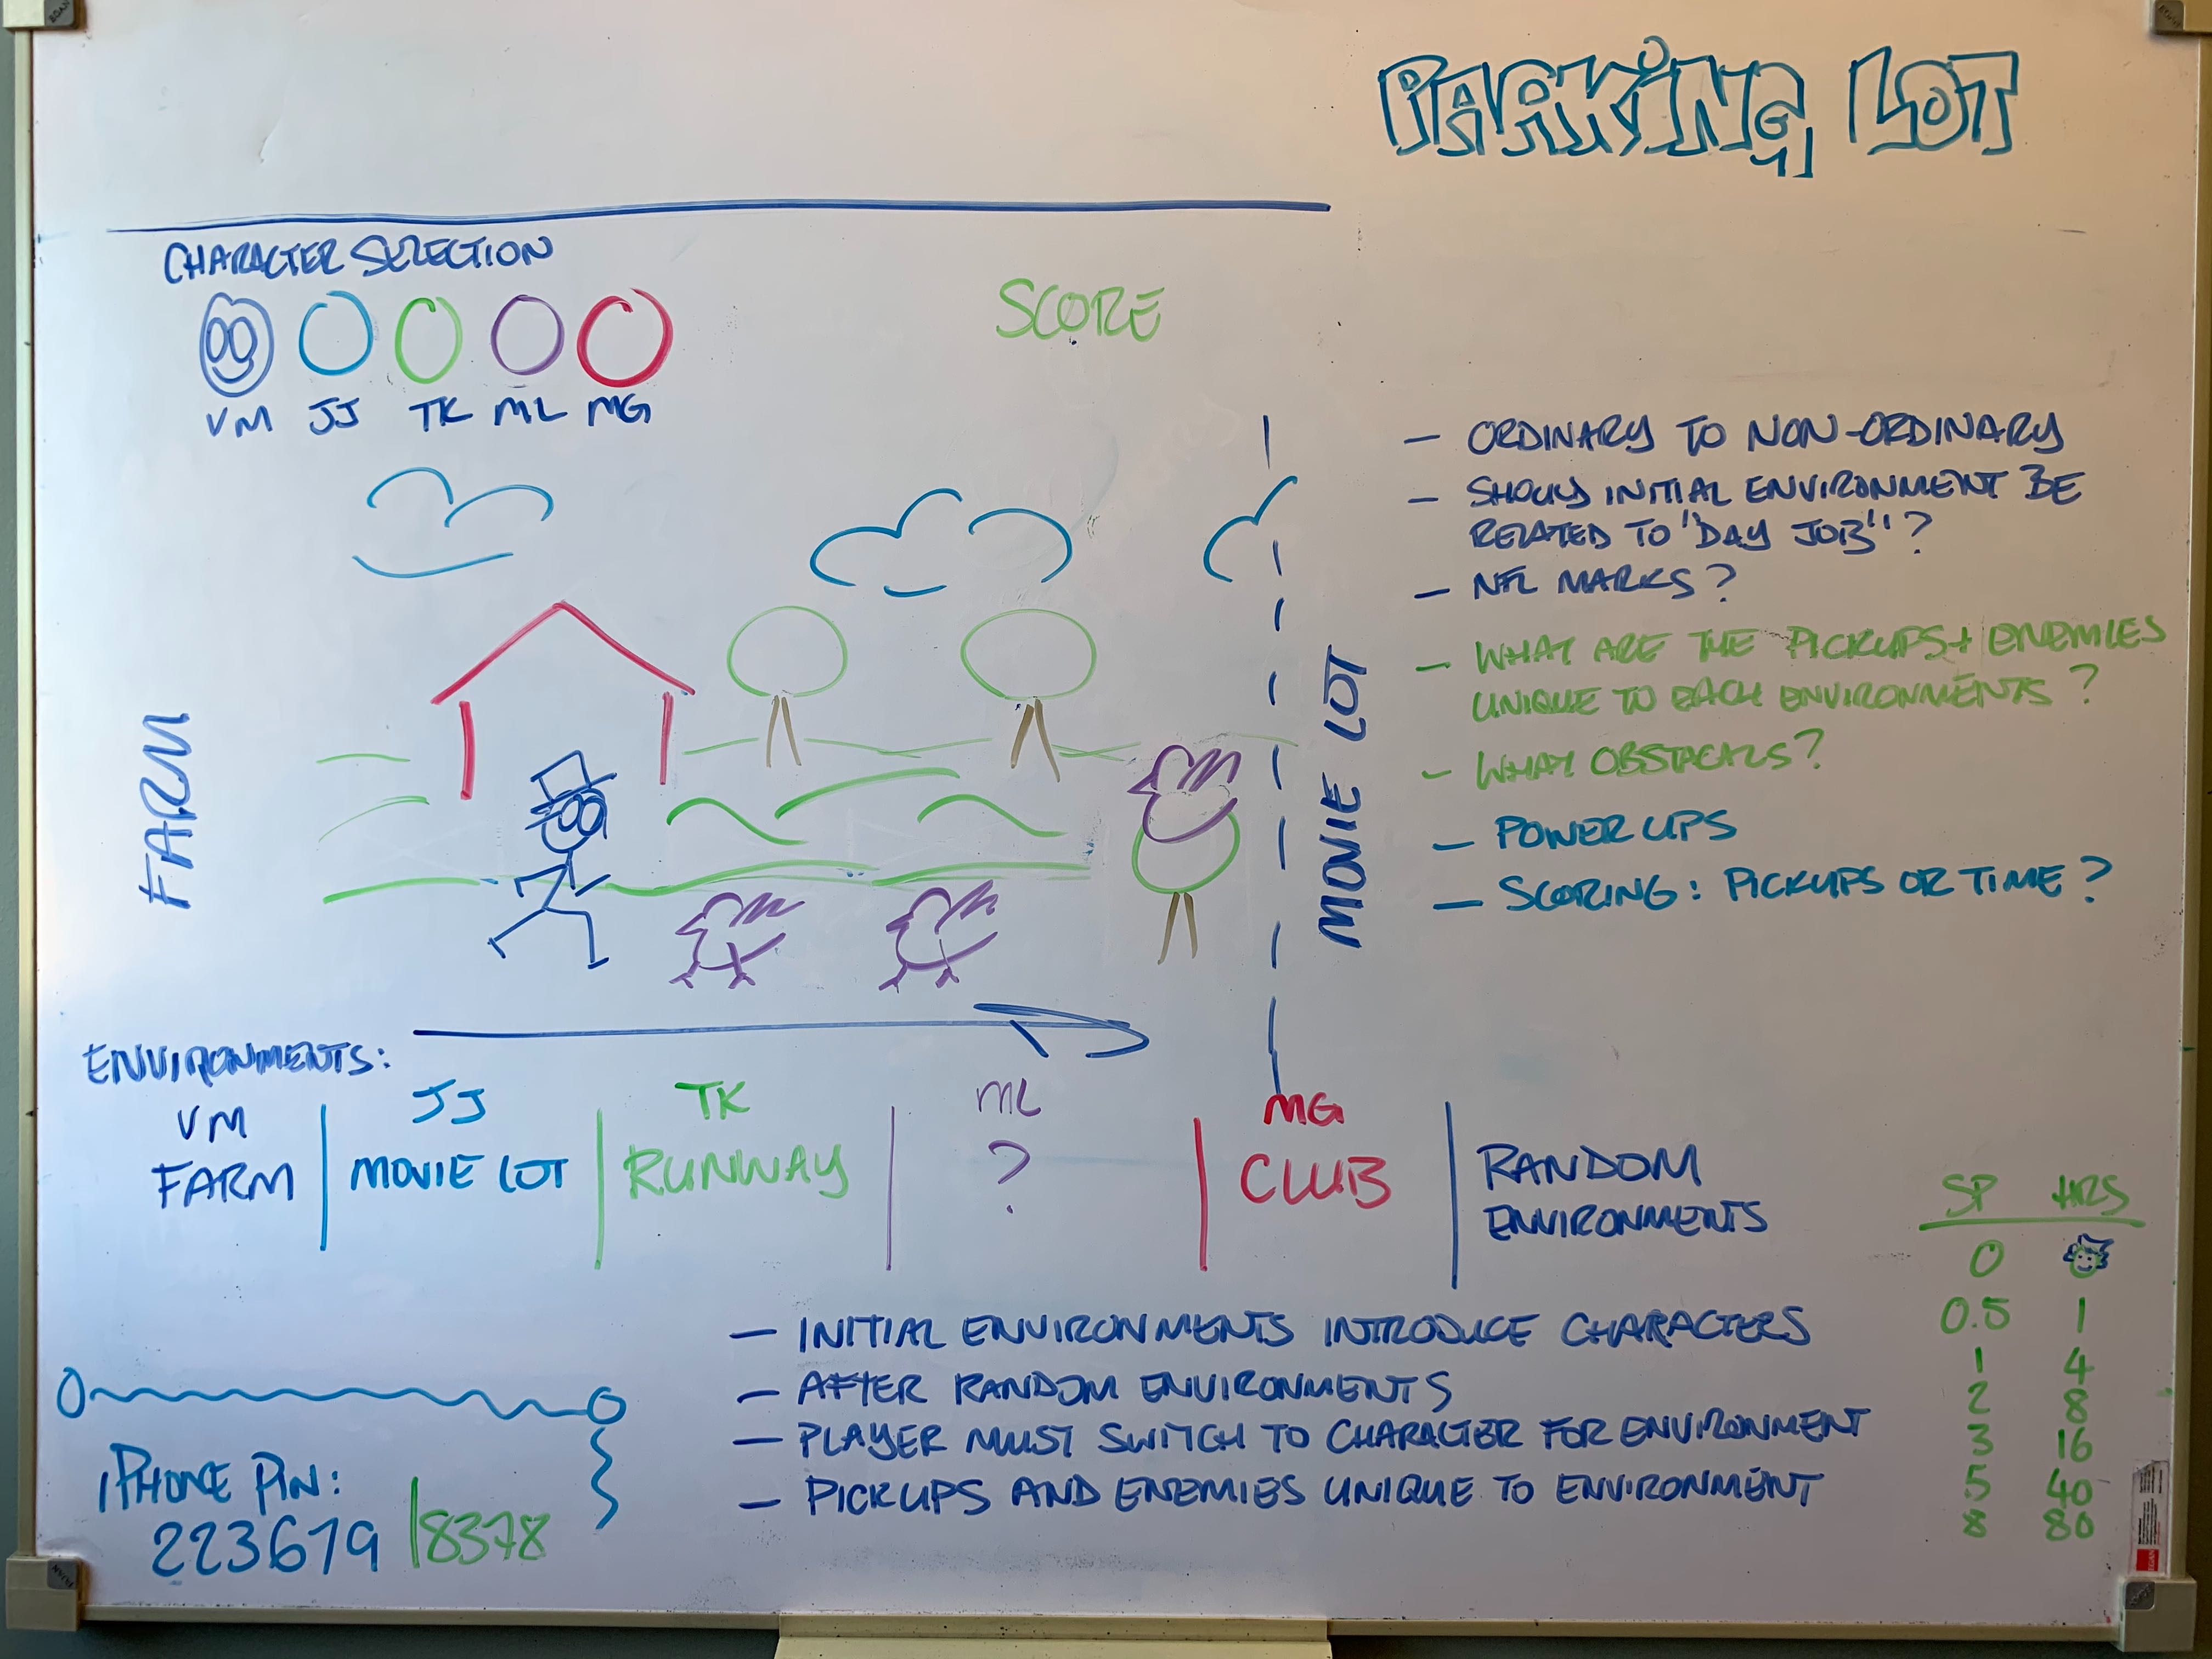 PARKING LOT
CHARACTER SELECTION
SCORE
VM JJ TK ML MG
FARM
MOVIE LOT
— ORDINARY TO NON-ORDINARY
— SHOULD INITIAL ENVIRONMENT BE
RELATED TO "DAY JOB"?
— NFL MARKS?
— WHAT ARE THE PICKUPS + ENEMIES
UNIQUE TO EACH ENVIRONMENTS?
— WHAT OBSTACALS?
— POWER UPS
— SCORING: PICKUPS OR TIME?
ENVIRONMENTS:
VM
FARM
JJ
MOVIE LOT
TK
RUNWAY
ML
?
MG
CLUB
RANDOM
ENVIRONMENTS
— INITIAL ENVIRONMENTS INTRODUCE CHARACTERS
— AFTER RANDOM ENVIRONMENTS
— PLAYER MUST SWITCH TO CHARACTER FOR ENVIRONMENT
— PICKUPS AND ENEMIES UNIQUE TO ENVIRONMENT
iPHONE PIN:
223679 | 8378
SP HRS
0
0.5 1
1 4
2 8
3 16
5 40
8 80